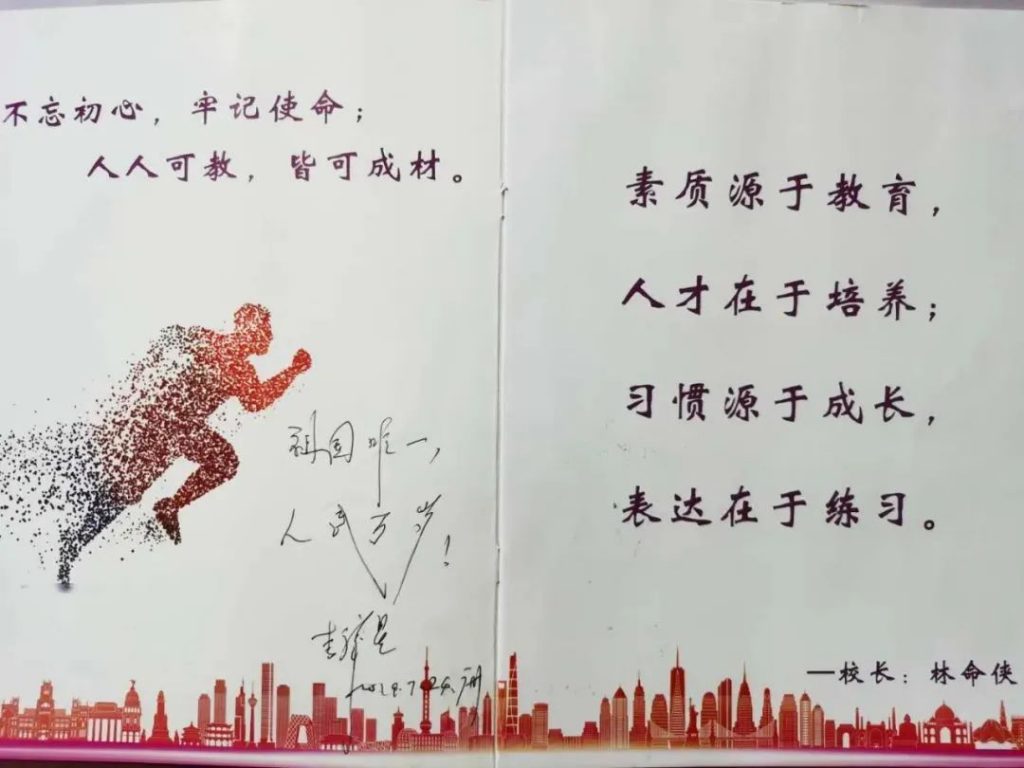 不忘初心，牢记使命；
人人可教，皆可成材。
祖国唯一，
人民万岁！
素质源于教育，
人才在于培养；
习惯源于成长，
表达在于练习。
—校长：林命侠